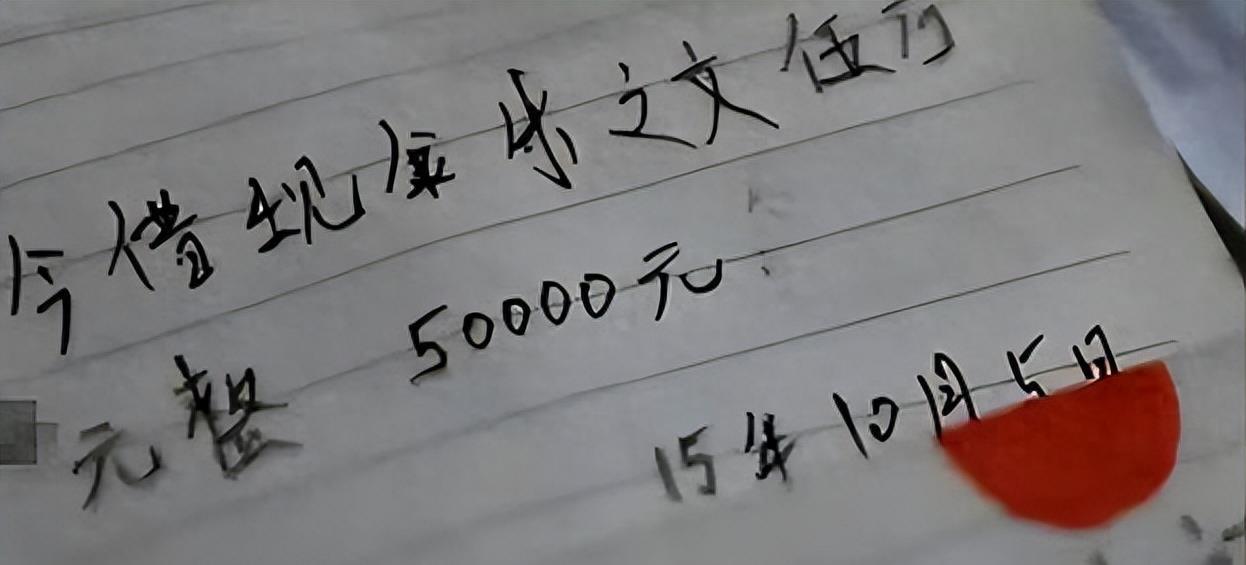 今借现康乐文伍万
元整 50000元
15年10月5日